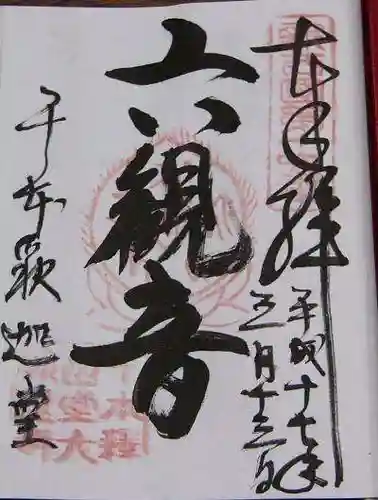 奉拝
平成十七年
五月十三日
六観音
千本釈迦堂